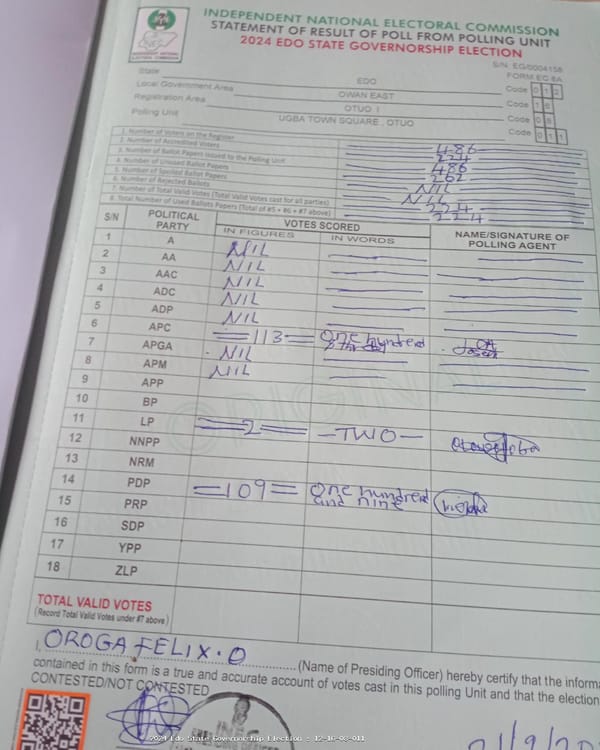 INDEPENDENT NATIONAL ELECTORAL COMMISSION
STATEMENT OF RESULT OF POLL FROM POLLING UNIT
2024 EDO STATE GOVERNORSHIP ELECTION
S/N: EG/0004158
FORM EC 8A
State EDO Code 0 1 2
Local Government Area OWAN EAST Code 1 6
Registration Area OTUO I Code 0 8
Polling Unit UGBA TOWN SQUARE, OTUO Code 0 1 1
1. Number of Voters on the Register 486
2. Number of Accredited Voters 224
3. Number of Ballot Papers Issued to the Polling Unit 486
4. Number of Unused Ballot Papers 262
5. Number of Spoiled Ballot Papers NIL
6. Number of Rejected Ballots NIL
7. Number of Total Valid Votes (Total Valid Votes cast for all parties) 224
8. Total Number of Used Ballots Papers (Total of #5 + #6 + #7 above) 224
S/N POLITICAL PARTY VOTES SCORED NAME/SIGNATURE OF POLLING AGENT
IN FIGURES IN WORDS
1 A NIL
2 AA NIL
3 AAC NIL
4 ADC NIL
5 ADP NIL
6 APC =113= One hundred
7 APGA NIL Joseph
8 APM NIL
9 APP
10 BP
11 LP =2= -TWO-
12 NNPP
13 NRM
14 PDP =109= One hundred and nine
15 PRP
16 SDP
17 YPP
18 ZLP
TOTAL VALID VOTES
(Record Total Valid Votes under #7 above)
I, OROGA FELIX. O (Name of Presiding Officer) hereby certify that the informa
contained in this form is a true and accurate account of votes cast in this polling Unit and that the election
CONTESTED/NOT CONTESTED
21/9/20
2024 Edo State Governorship Election : 12-16-08-011